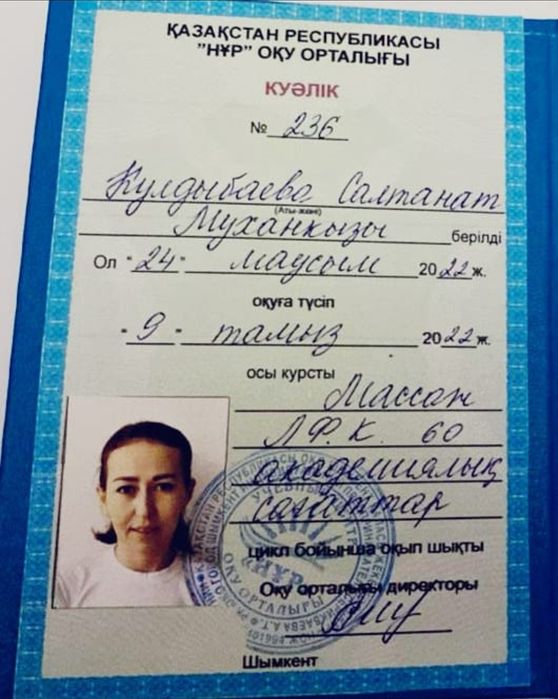 ҚАЗАҚСТАН РЕСПУБЛИКАСЫ
"НҰР" ОҚУ ОРТАЛЫҒЫ
КУӘЛІК
№ 236
Кулдыбаева Салтанат
(Аты-жөні)
Муханкызы берілді
Ол "24" маусым 2022 ж.
оқуға түсіп
"9" тамыз 2022 ж.
осы курсты
Массаж
ЛФ.К. 60
академиялық
сағаттар
цикл бойынша оқып шықты
Оқу орталығы директоры
Шымкент